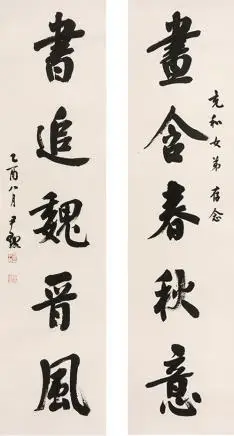 充和女弟 存念
畫含春秋意
書追魏晉風
乙酉八月 尹默